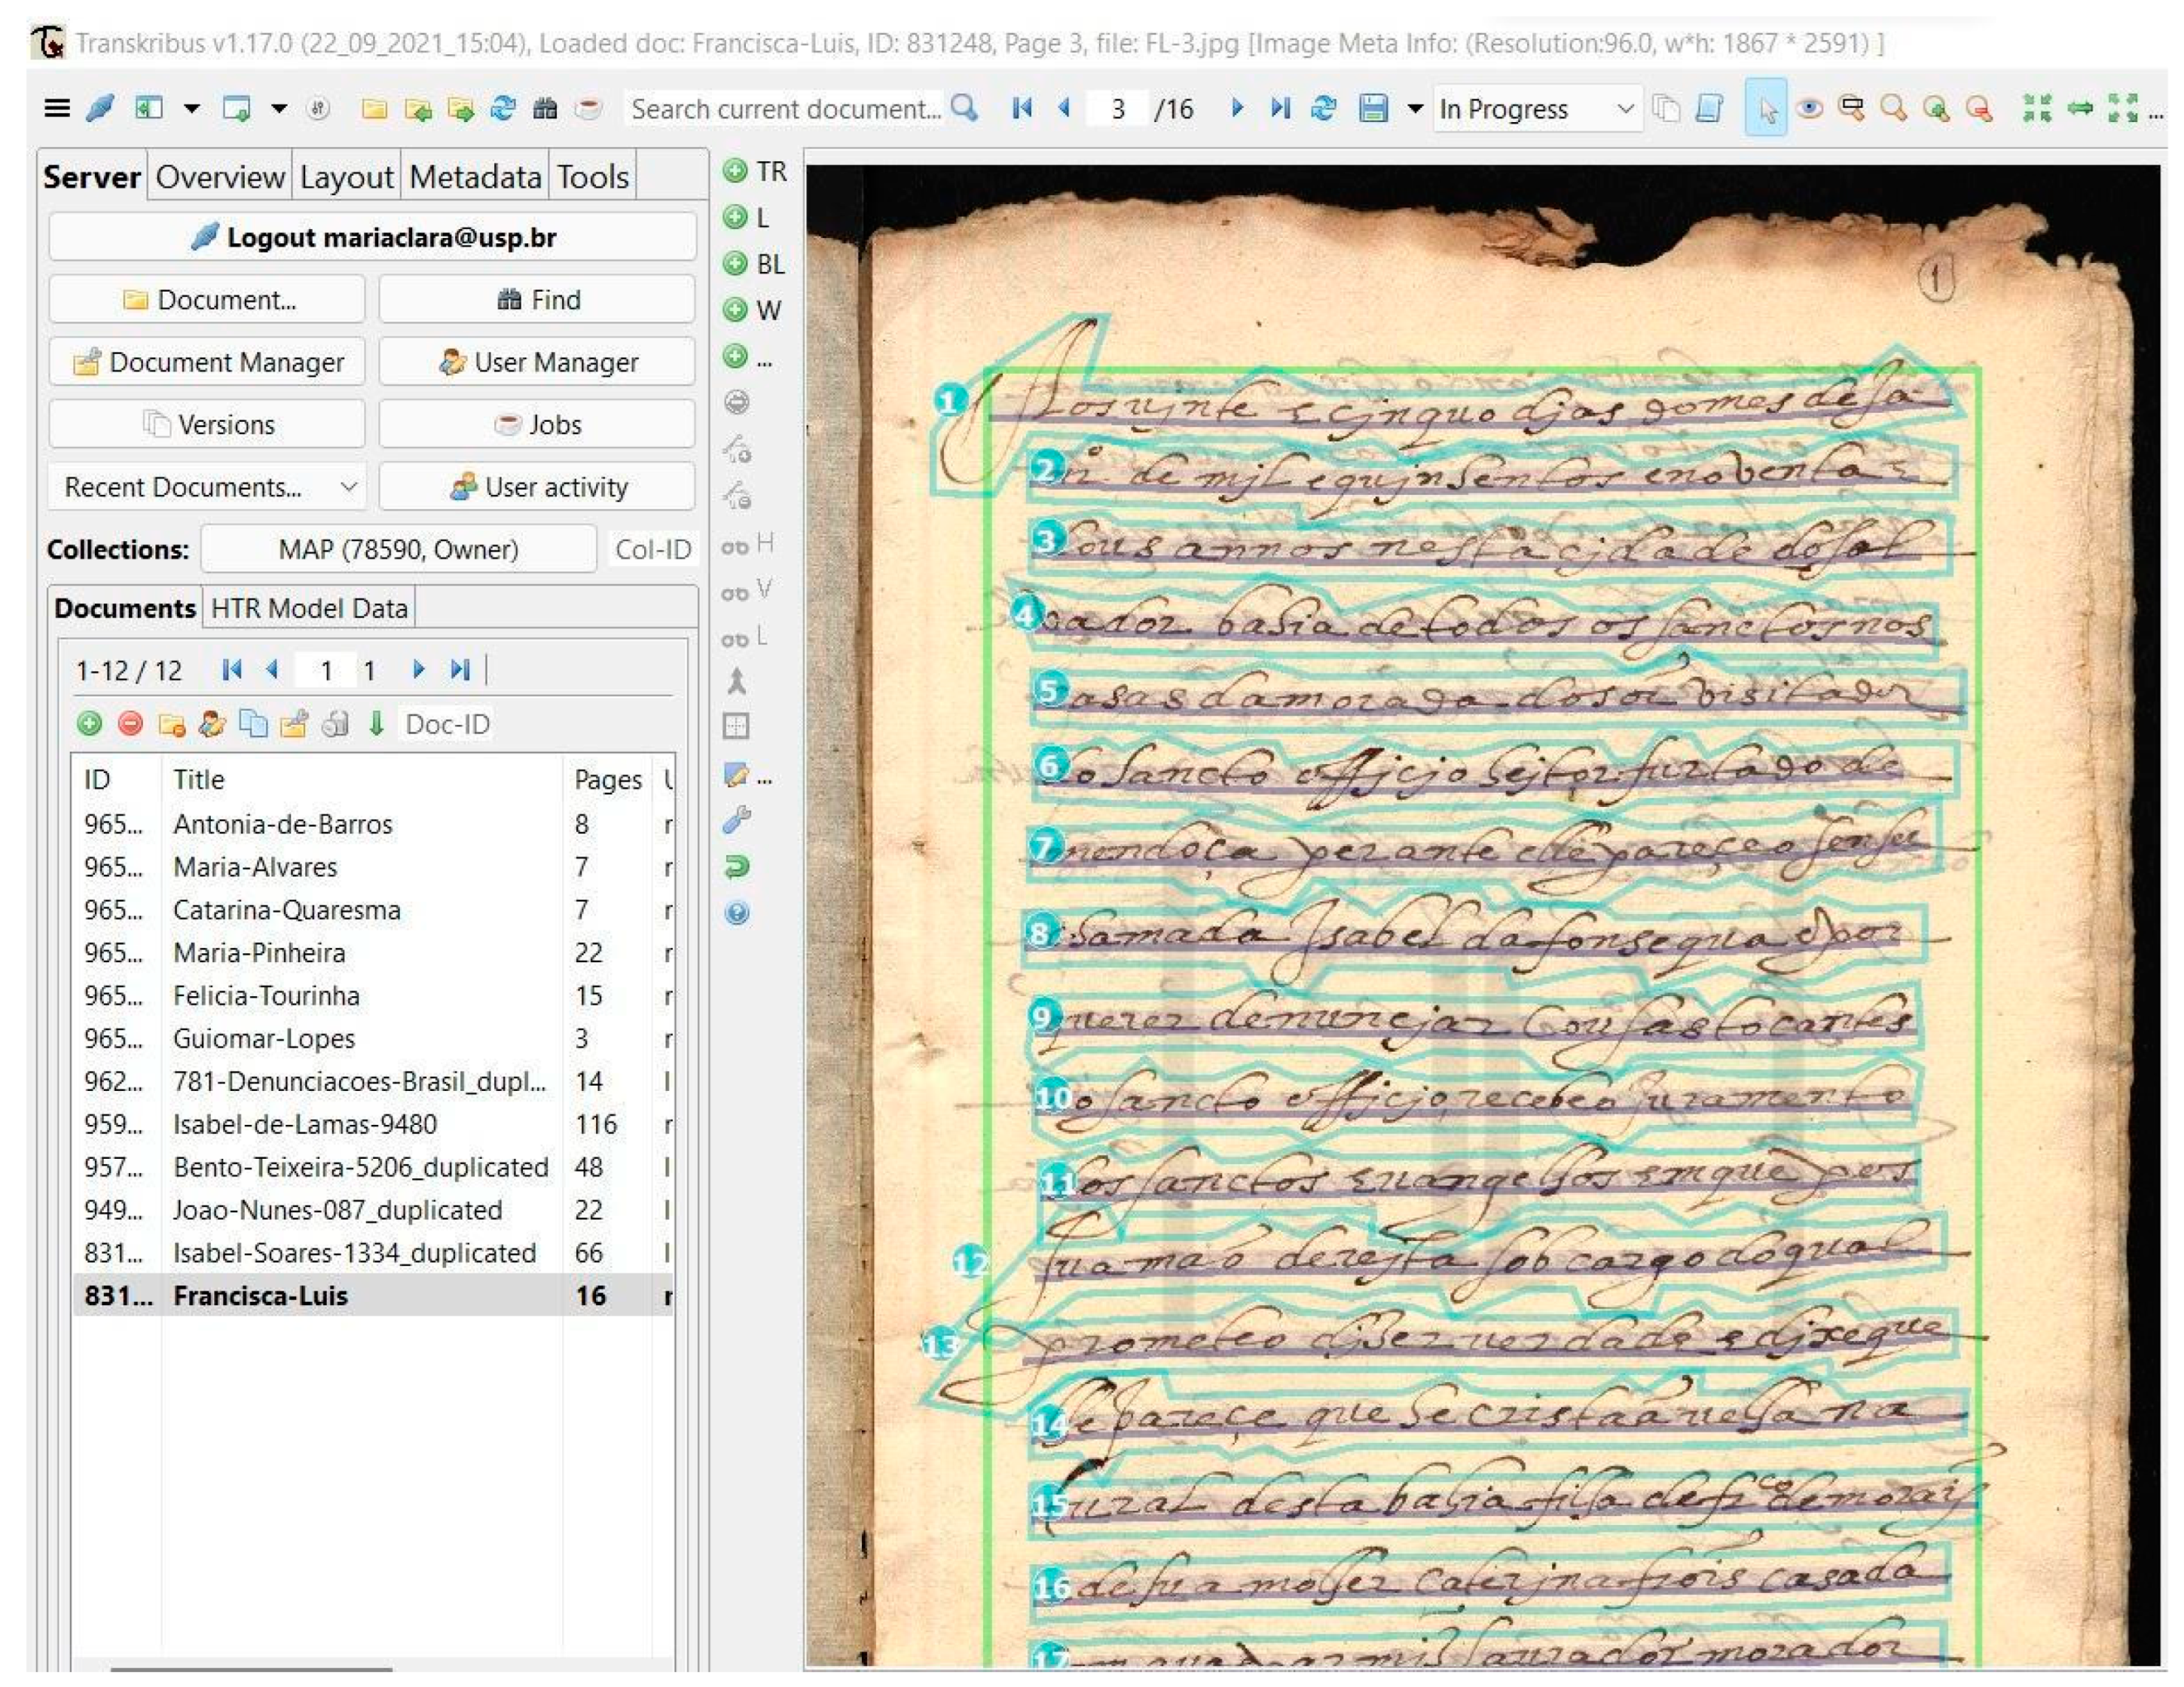 Transkribus v1.17.0 (22_09_2021_15:04), Loaded doc: Francisca-Luis, ID: 831248, Page 3, file: FL-3.jpg [Image Meta Info: (Resolution:96.0, w*h: 1867 * 2591) ]
Search current document... 3 /16 In Progress ...
Server Overview Layout Metadata Tools
Logout mariaclara@usp.br
Document... Find
Document Manager User Manager
Versions Jobs
Recent Documents... User activity
Collections: MAP (78590, Owner) Col-ID
Documents HTR Model Data
1-12 / 12 1 1
Doc-ID
ID Title Pages
965... Antonia-de-Barros 8 r
965... Maria-Alvares 7 r
965... Catarina-Quaresma 7 r
965... Maria-Pinheira 22 r
965... Felicia-Tourinha 15 r
965... Guiomar-Lopes 3 r
962... 781-Denunciacoes-Brasil_dupl... 14 l
959... Isabel-de-Lamas-9480 116 r
957... Bento-Teixeira-5206_duplicated 48 l
949... Joao-Nunes-087_duplicated 22 l
831... Isabel-Soares-1334_duplicated 66 l
831... Francisca-Luis 16 r
TR
L
BL
W
...
H
V
L
...
1
1 Aos vinte e cinquo djas do mes de Ja
2 de mjl e qujnhentos e noventa e
3 dous annos nesta cjdade do sal
4 vador bahia de todos os sanctos nos
5 casas da morada do sor visitador
6 do sancto officjo hejtor furtado de
7 mendoça perante elle pareçeo sem ser
8 chamada Isabel da fonsequa e por
9 querer denuncjar cousas tocantes
10 ao sancto officjo recebeo Juramento
11 dos sanctos euangelhos em que pos
12 sua mão dereita sob cargo do qual
13 prometeo djzer verdade e djxe que
14 lhe pareçe que he cristaã velha na
15 tural desta bahia filha de frco de morais
16 de sua molher caterjna frois casada
17 laurador morador